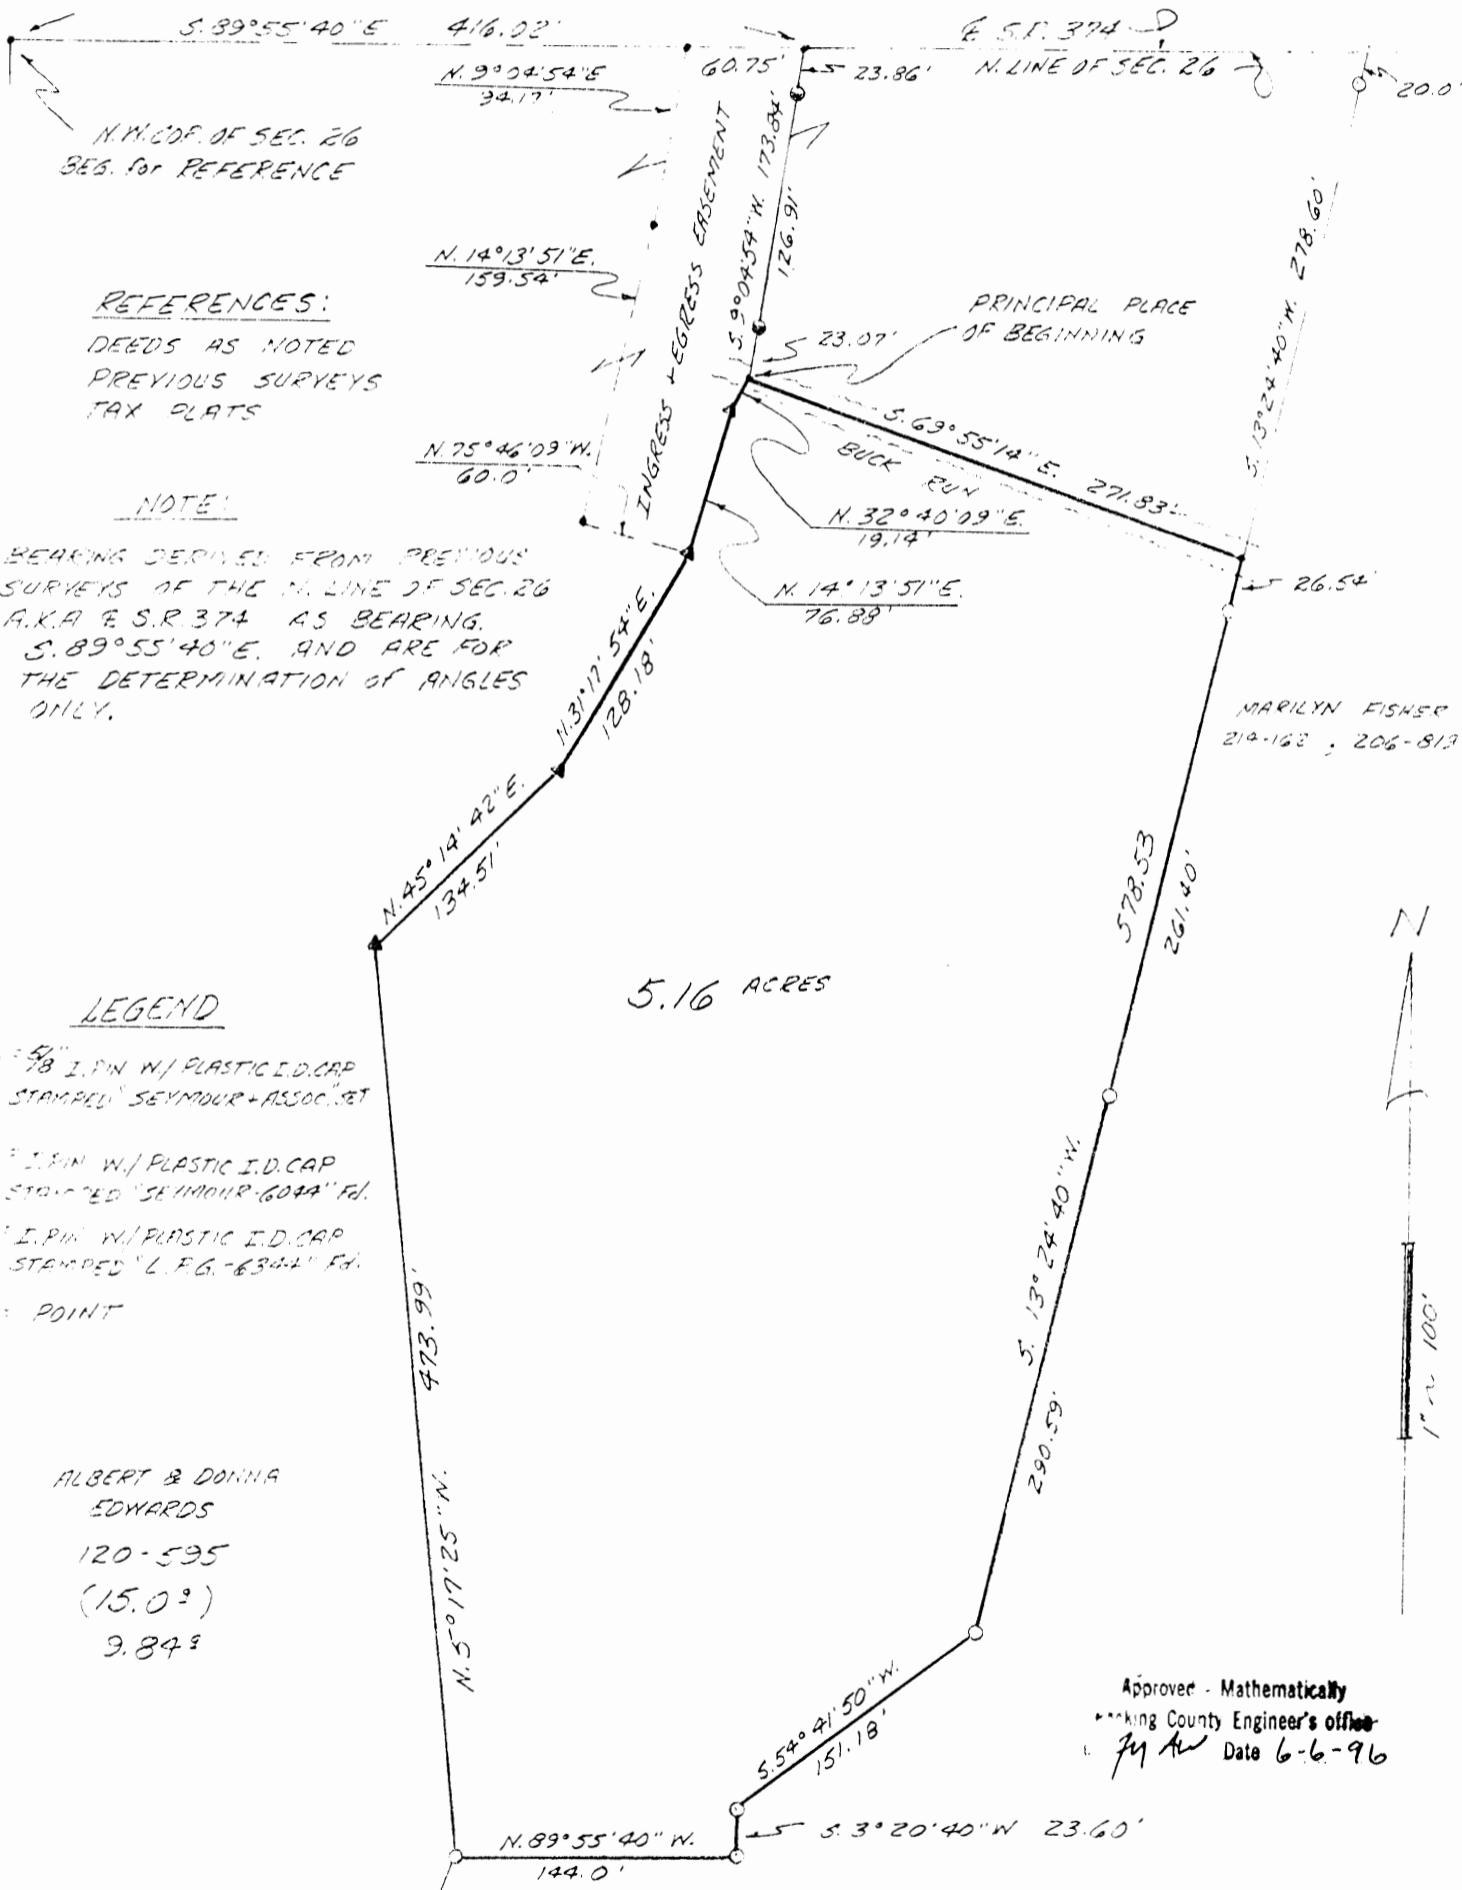 S. 89°55'40"E 416.02'
℄ S.R. 374
N. 9°04'54"E
94.17'
60.75'
23.86'
N. LINE OF SEC. 26
20.0'
N.W. COR. OF SEC. 26
BEG. for REFERENCE
INGRESS + EGRESS EASEMENT
S. 9°04'54"W. 173.84'
126.91'
S. 13°24'40"W. 278.60'
N. 14°13'51"E.
159.54'
REFERENCES:
DEEDS AS NOTED
PREVIOUS SURVEYS
TAX PLATS
PRINCIPAL PLACE
OF BEGINNING
23.07'
S. 69°55'14"E. 271.83'
BUCK RUN
N. 75°46'09"W.
60.0'
N. 32°40'09"E.
19.14'
N. 14°13'51"E.
76.88'
26.54'
NOTE:
BEARING DERIVED FROM PREVIOUS
SURVEYS OF THE N. LINE OF SEC. 26
A.K.A ℄ S.R. 374 AS BEARING.
S. 89°55'40"E. AND ARE FOR
THE DETERMINATION of ANGLES
ONLY.
N. 31°17'54"E.
128.18'
MARILYN FISHER
206-819
N. 45°14'42"E.
134.51'
578.53
261.40'
N
5.16 ACRES
LEGEND
= 5/8" I. PIN W/ PLASTIC I.D. CAP
STAMPED "SEYMOUR + ASSOC." SET
= I. PIN W./ PLASTIC I.D. CAP
STAMPED "SEYMOUR-6044" Fd.
I. PIN W/ PLASTIC I.D. CAP
STAMPED "L.P.G.-6344" Fd.
= POINT
473.99'
N. 5°17'25"W.
S. 13°24'40"W.
290.59'
1" ~ 100'
ALBERT & DONNA
EDWARDS
120-595
(15.0ª)
9.84ª
S. 54°41'50"W.
151.18'
Approved - Mathematically
County Engineer's office
Date 6-6-96
N. 89°55'40"W.
144.0'
S. 3°20'40"W 23.60'